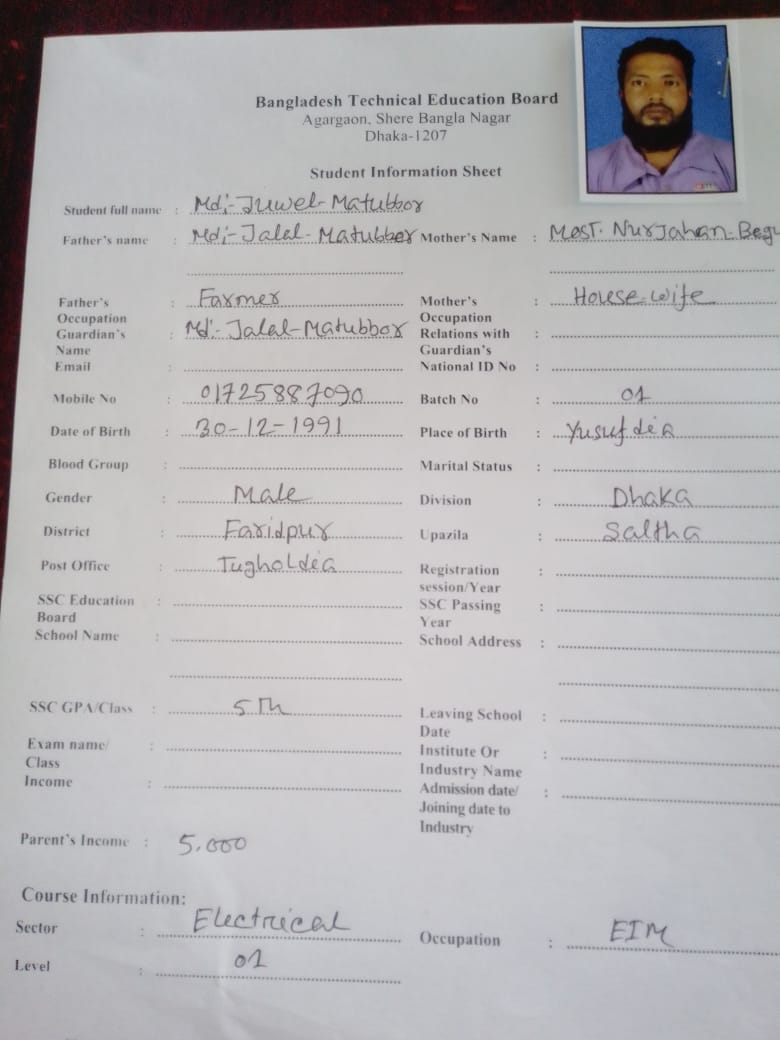 Bangladesh Technical Education Board
Agargaon, Shere Bangla Nagar
Dhaka-1207
Student Information Sheet
Student full name : Md:-Juwel-Matubbor
Father's name : Md:-Jalal-Matubber Mother's Name : Most. Nurjahan-Begu
Father's Occupation : Farmer Mother's Occupation : House-wife
Guardian's Name : Md:-Jalal-Matubbor Relations with Guardian's :
Email : National ID No :
Mobile No : 01725887090 Batch No : 01
Date of Birth : 30-12-1991 Place of Birth : Yusufdia
Blood Group : Marital Status :
Gender : Male Division : Dhaka
District : Faridpur Upazila : Saltha
Post Office : Tugholdia Registration session/Year :
SSC Education Board : SSC Passing Year :
School Name : School Address :
SSC GPA/Class : 5Th Leaving School Date :
Exam name/ Class : Institute Or Industry Name :
Income : Admission date/ Joining date to Industry :
Parent's Income : 5.000
Course Information:
Sector : Electrical Occupation : EIM
Level : 01